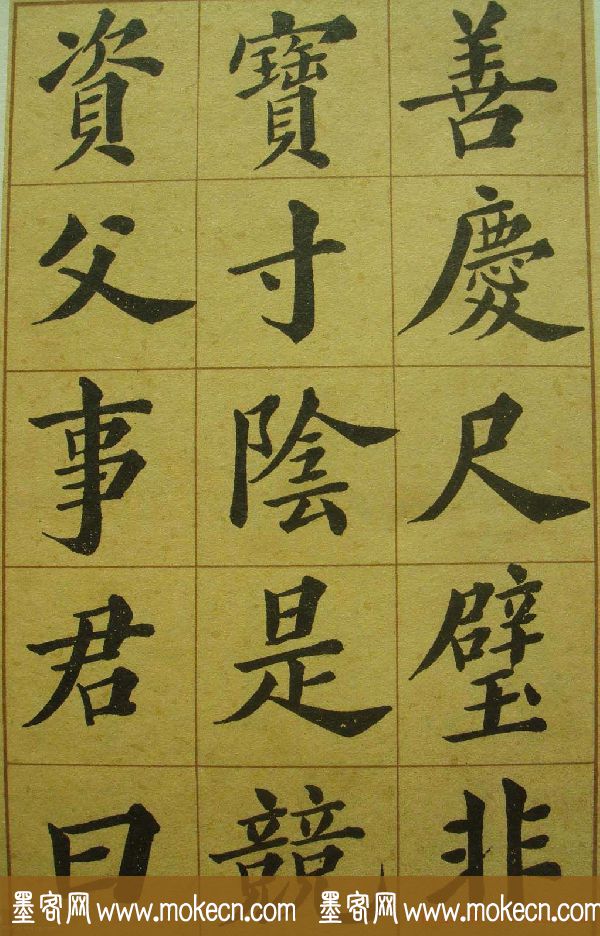 善慶尺璧非
寶寸陰是競
資父事君曰
墨客网 www.mokecn.com 墨客网 www.mokecn.com